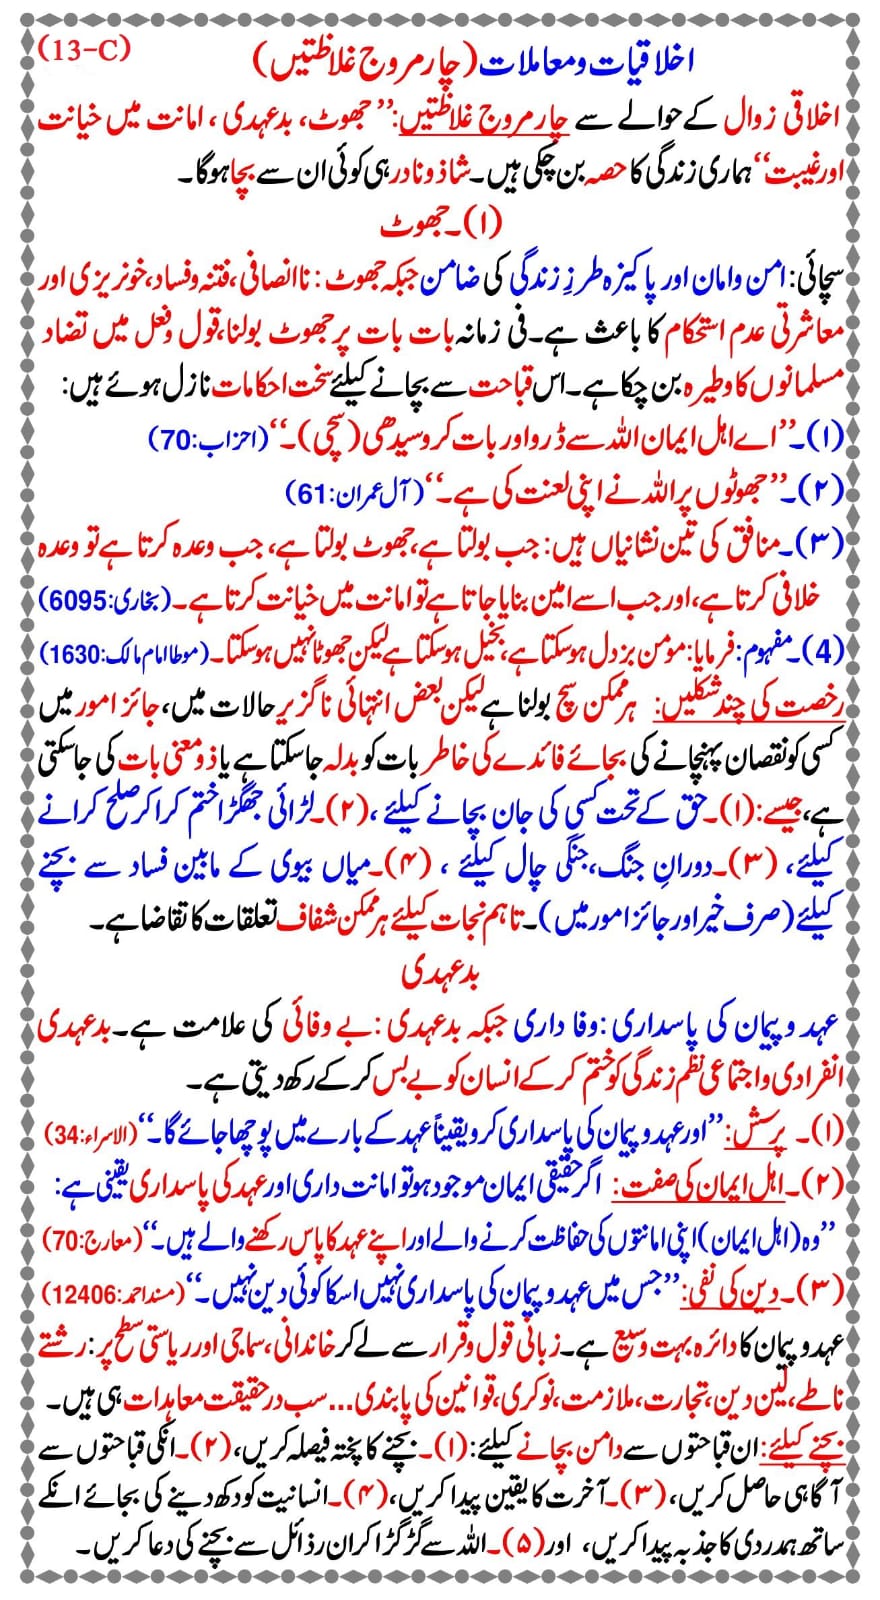 (13-C)
اخلاقیات ومعاملات (چار مروج غلاظتیں)
اخلاقی زوال کے حوالے سے چار مروج غلاظتیں: ’’جھوٹ، بدعہدی، امانت میں خیانت
اور غیبت‘‘ ہماری زندگی کا حصہ بن چکی ہیں۔ شاذ و نادر ہی کوئی ان سے بچا ہوگا۔
(۱)۔ جھوٹ
سچائی: امن وامان اور پاکیزہ طرزِ زندگی کی ضامن جبکہ جھوٹ: ناانصافی، فتنہ وفساد، خونریزی اور
معاشرتی عدم استحکام کا باعث ہے۔ فی زمانہ بات بات پر جھوٹ بولنا، قول وفعل میں تضاد
مسلمانوں کا وطیرہ بن چکا ہے۔ اس قباحت سے بچانے کیلئے سخت احکامات نازل ہوئے ہیں:
(۱)۔ ’’اے اہل ایمان اللہ سے ڈرو اور بات کرو سیدھی (سچی)۔‘‘ (احزاب:70)
(۲)۔ ’’جھوٹوں پر اللہ نے اپنی لعنت کی ہے۔‘‘ (آل عمران:61)
(۳)۔ منافق کی تین نشانیاں ہیں: جب بولتا ہے، جھوٹ بولتا ہے، جب وعدہ کرتا ہے تو وعدہ
خلافی کرتا ہے، اور جب اسے امین بنایا جاتا ہے تو امانت میں خیانت کرتا ہے۔ (بخاری:6095)
(4)۔ مفہوم: فرمایا: مومن بزدل ہوسکتا ہے، بخیل ہوسکتا ہے لیکن جھوٹا نہیں ہوسکتا۔ (موطا امام مالک:1630)
رخصت کی چند شکلیں: ہر ممکن سچ بولنا ہے لیکن بعض انتہائی ناگزیر حالات میں، جائز امور میں
کسی کو نقصان پہنچانے کی بجائے فائدے کی خاطر بات کو بدلہ جاسکتا ہے یا ذو معنی بات کی جاسکتی
ہے، جیسے: (۱)۔ حق کے تحت کسی کی جان بچانے کیلئے، (۲)۔ لڑائی جھگڑا ختم کرا کر صلح کرانے
کیلئے، (۳)۔ دورانِ جنگ، جنگی چال کیلئے، (۴)۔ میاں بیوی کے مابین فساد سے بچنے
کیلئے (صرف خیر اور جائز امور میں)۔ تاہم نجات کیلئے ہر ممکن شفاف تعلقات کا تقاضا ہے۔
بدعہدی
عہد وپیمان کی پاسداری: وفاداری جبکہ بدعہدی: بے وفائی کی علامت ہے۔ بدعہدی
انفرادی واجتماعی نظم زندگی کو ختم کرکے انسان کو بے بس کرکے رکھ دیتی ہے۔
(۱)۔ پرسش: ’’اور عہد وپیمان کی پاسداری کرو یقیناً عہد کے بارے میں پوچھا جائے گا۔‘‘ (الاسراء:34)
(۲)۔ اہل ایمان کی صفت: اگر حقیقی ایمان موجود ہو تو امانت داری اور عہد کی پاسداری یقینی ہے:
’’وہ (اہل ایمان) اپنی امانتوں کی حفاظت کرنے والے اور اپنے عہد کا پاس رکھنے والے ہیں۔‘‘ (معارج:70)
(۳)۔ دین کی نفی: ’’جس میں عہد وپیمان کی پاسداری نہیں اسکا کوئی دین نہیں۔‘‘ (مسند احمد:12406)
عہد وپیمان کا دائرہ بہت وسیع ہے۔ زبانی قول وقرار سے لے کر خاندانی، سماجی اور ریاستی سطح پر: رشتے
ناطے، لین دین، تجارت، ملازمت، نوکری، قوانین کی پابندی... سب درحقیقت معاہدات ہی ہیں۔
بچنے کیلئے: ان قباحتوں سے دامن بچانے کیلئے: (۱)۔ بچنے کا پختہ فیصلہ کریں، (۲)۔ انکی قباحتوں سے
آگاہی حاصل کریں، (۳)۔ آخرت کا یقین پیدا کریں، (۴)۔ انسانیت کو دکھ دینے کی بجائے انکے
ساتھ ہمدردی کا جذبہ پیدا کریں، اور (۵)۔ اللہ سے گڑگڑا کر ان رذائل سے بچنے کی دعا کریں۔